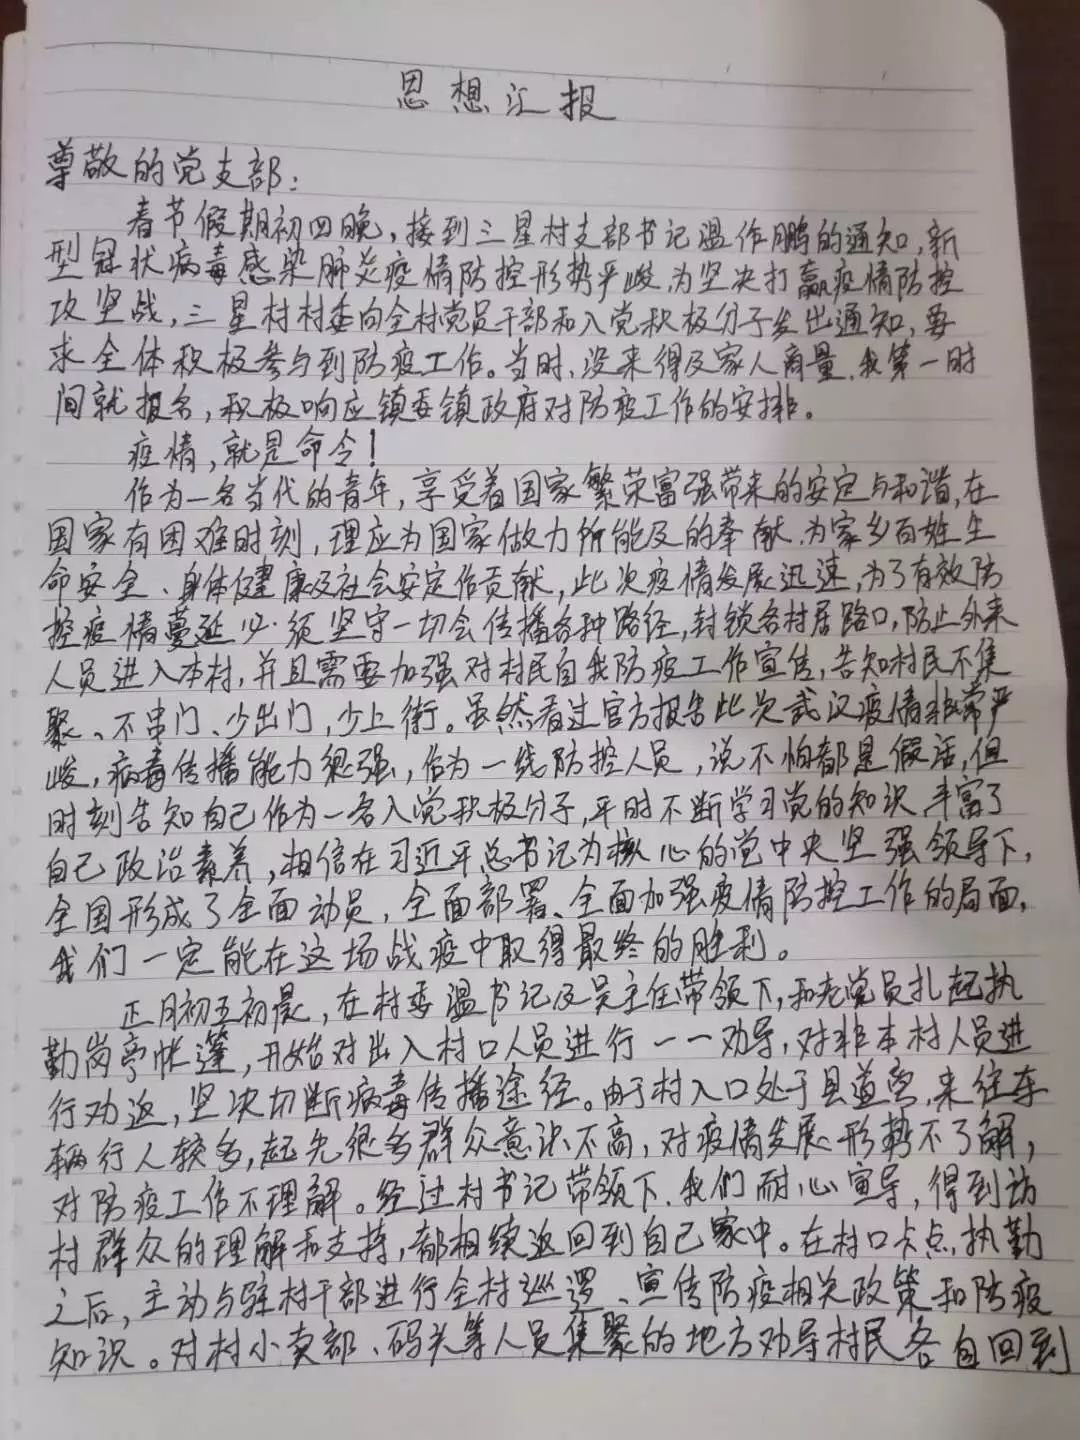 思想汇报
尊敬的党支部：
春节假期初四晚，接到三星村支部书记温作鹏的通知，新
型冠状病毒感染肺炎疫情防控形势严峻，为坚决打赢疫情防控
攻坚战，三星村村委向全村党员干部和入党积极分子发出通知，要
求全体积极参与到防疫工作。当时，没来得及家人商量，我第一时
间就报名，积极响应镇委镇政府对防疫工作的安排。
疫情，就是命令！
作为一名当代的青年，享受着国家繁荣富强带来的安定与和谐，在
国家有困难时刻，理应为国家做力所能及的奉献，为家乡百姓生
命安全、身体健康及社会安定作贡献，此次疫情发展迅速，为了有效防
控疫情蔓延必须坚守一切会传播各种路径，封锁各村居路口，防止外来
人员进入本村，并且需要加强对村民自我防疫工作宣传，告知村民不集
聚、不串门、少出门，少上街。虽然看过官方报告此次武汉疫情非常严
峻，病毒传播能力很强，作为一线防控人员，说不怕都是假话，但
时刻告知自己作为一名入党积极分子，平时不断学习党的知识丰富了
自己政治素养，相信在习近平总书记为核心的党中央坚强领导下，
全国形成了全面动员，全面部署、全面加强疫情防控工作的局面，
我们一定能在这场战疫中取得最终的胜利。
正月初五初晨，在村委温书记及吴主任带领下，和老党员扎起执
勤岗亭帐篷，开始对出入村口人员进行一一劝导，对非本村人员进
行劝返，坚决切断病毒传播途径。由于村入口处于县道旁，来往车
辆行人较多，起先很多群众意识不高，对疫情发展形势不了解，
对防疫工作不理解。经过村书记带领下，我们耐心宣导，得到访
村群众的理解和支持，都相续返回到自己家中。在村口卡点执勤
之后，主动与驻村干部进行全村巡逻、宣传防疫相关政策和防疫
知识。对村小卖部、码头等人员集聚的地方劝导村民各自回到